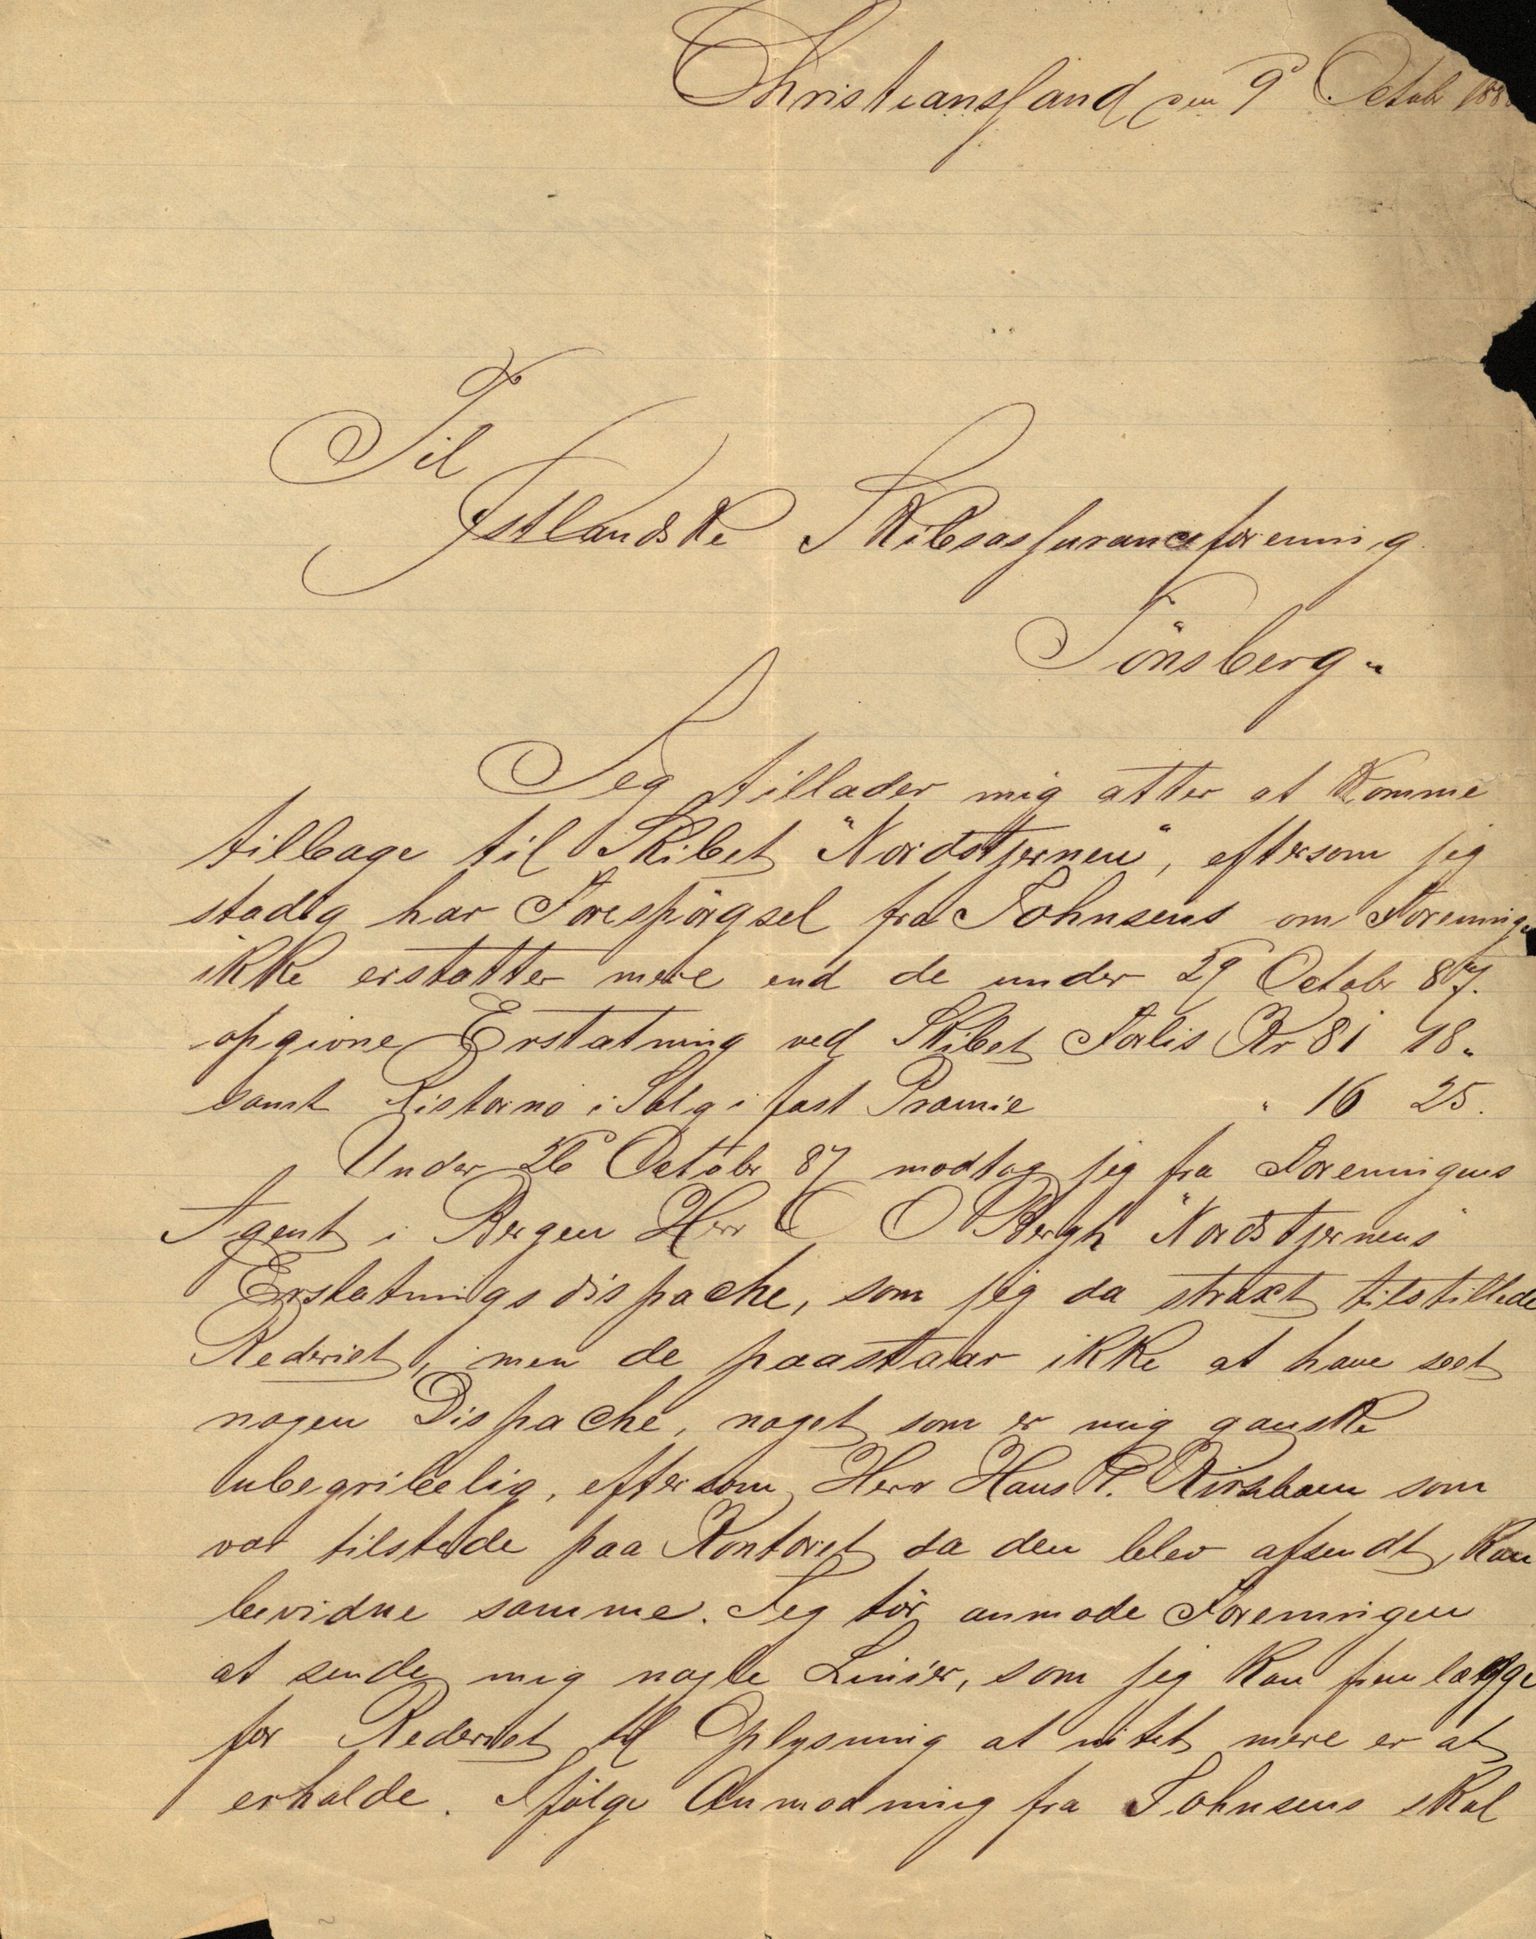 Christianssand den 9 Octobr 188
Til
Østlandske Skibsassuranceforening
Tönsberg.
Jeg tillader mig atter at komme
tilbage til Skibet "Nordstjernen", eftersom jeg
stadig har Forespörgsel fra Johnsens om Forening
ikke erstatter mere end de under 29 October 87.
opgivne Erstatning ved Skibet Forlis Kr 81 18.
samt Ristorno i Salg i fast Præmie " 16 25.
Under 26 Octobr 87 modtog jeg fra Foreningens
Agent i Bergen Herr C O Bergh "Nordstjernens"
Erstatningsdispache, som jeg da straxt tilstillede
Rederiet, men de paastaar ikke at have seet
nogen Dispache, noget som er mig ganske
ubegribelig, eftersom Herr Hans P. som
var tilstede paa Kontoret da den blev afsendt, kan
bevidne samme. Jeg tör anmode Foreningen
at sende mig nogle Linier, som jeg kan fremlægge
for Rederiet til Oplysning at intet mere er at
erholde. Ifölge Anmodning fra Johnsens skal